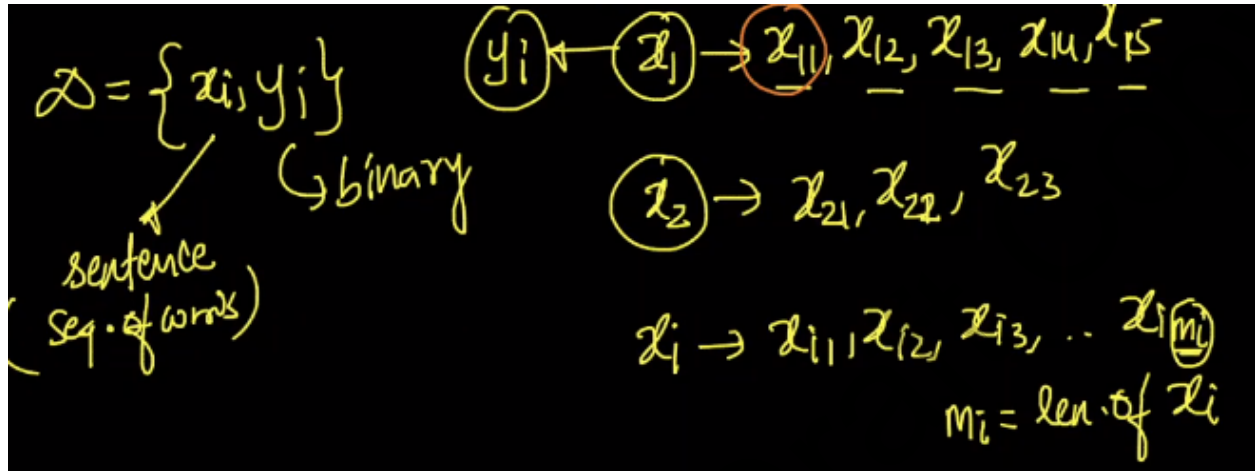 D = {xi, yi}
binary
sentence
(seq. of words)
yi ← x1 → x11, x12, x13, x14, x15
x2 → x21, x22, x23
xi → xi1, xi2, xi3, .. xi mi
mi = len. of xi